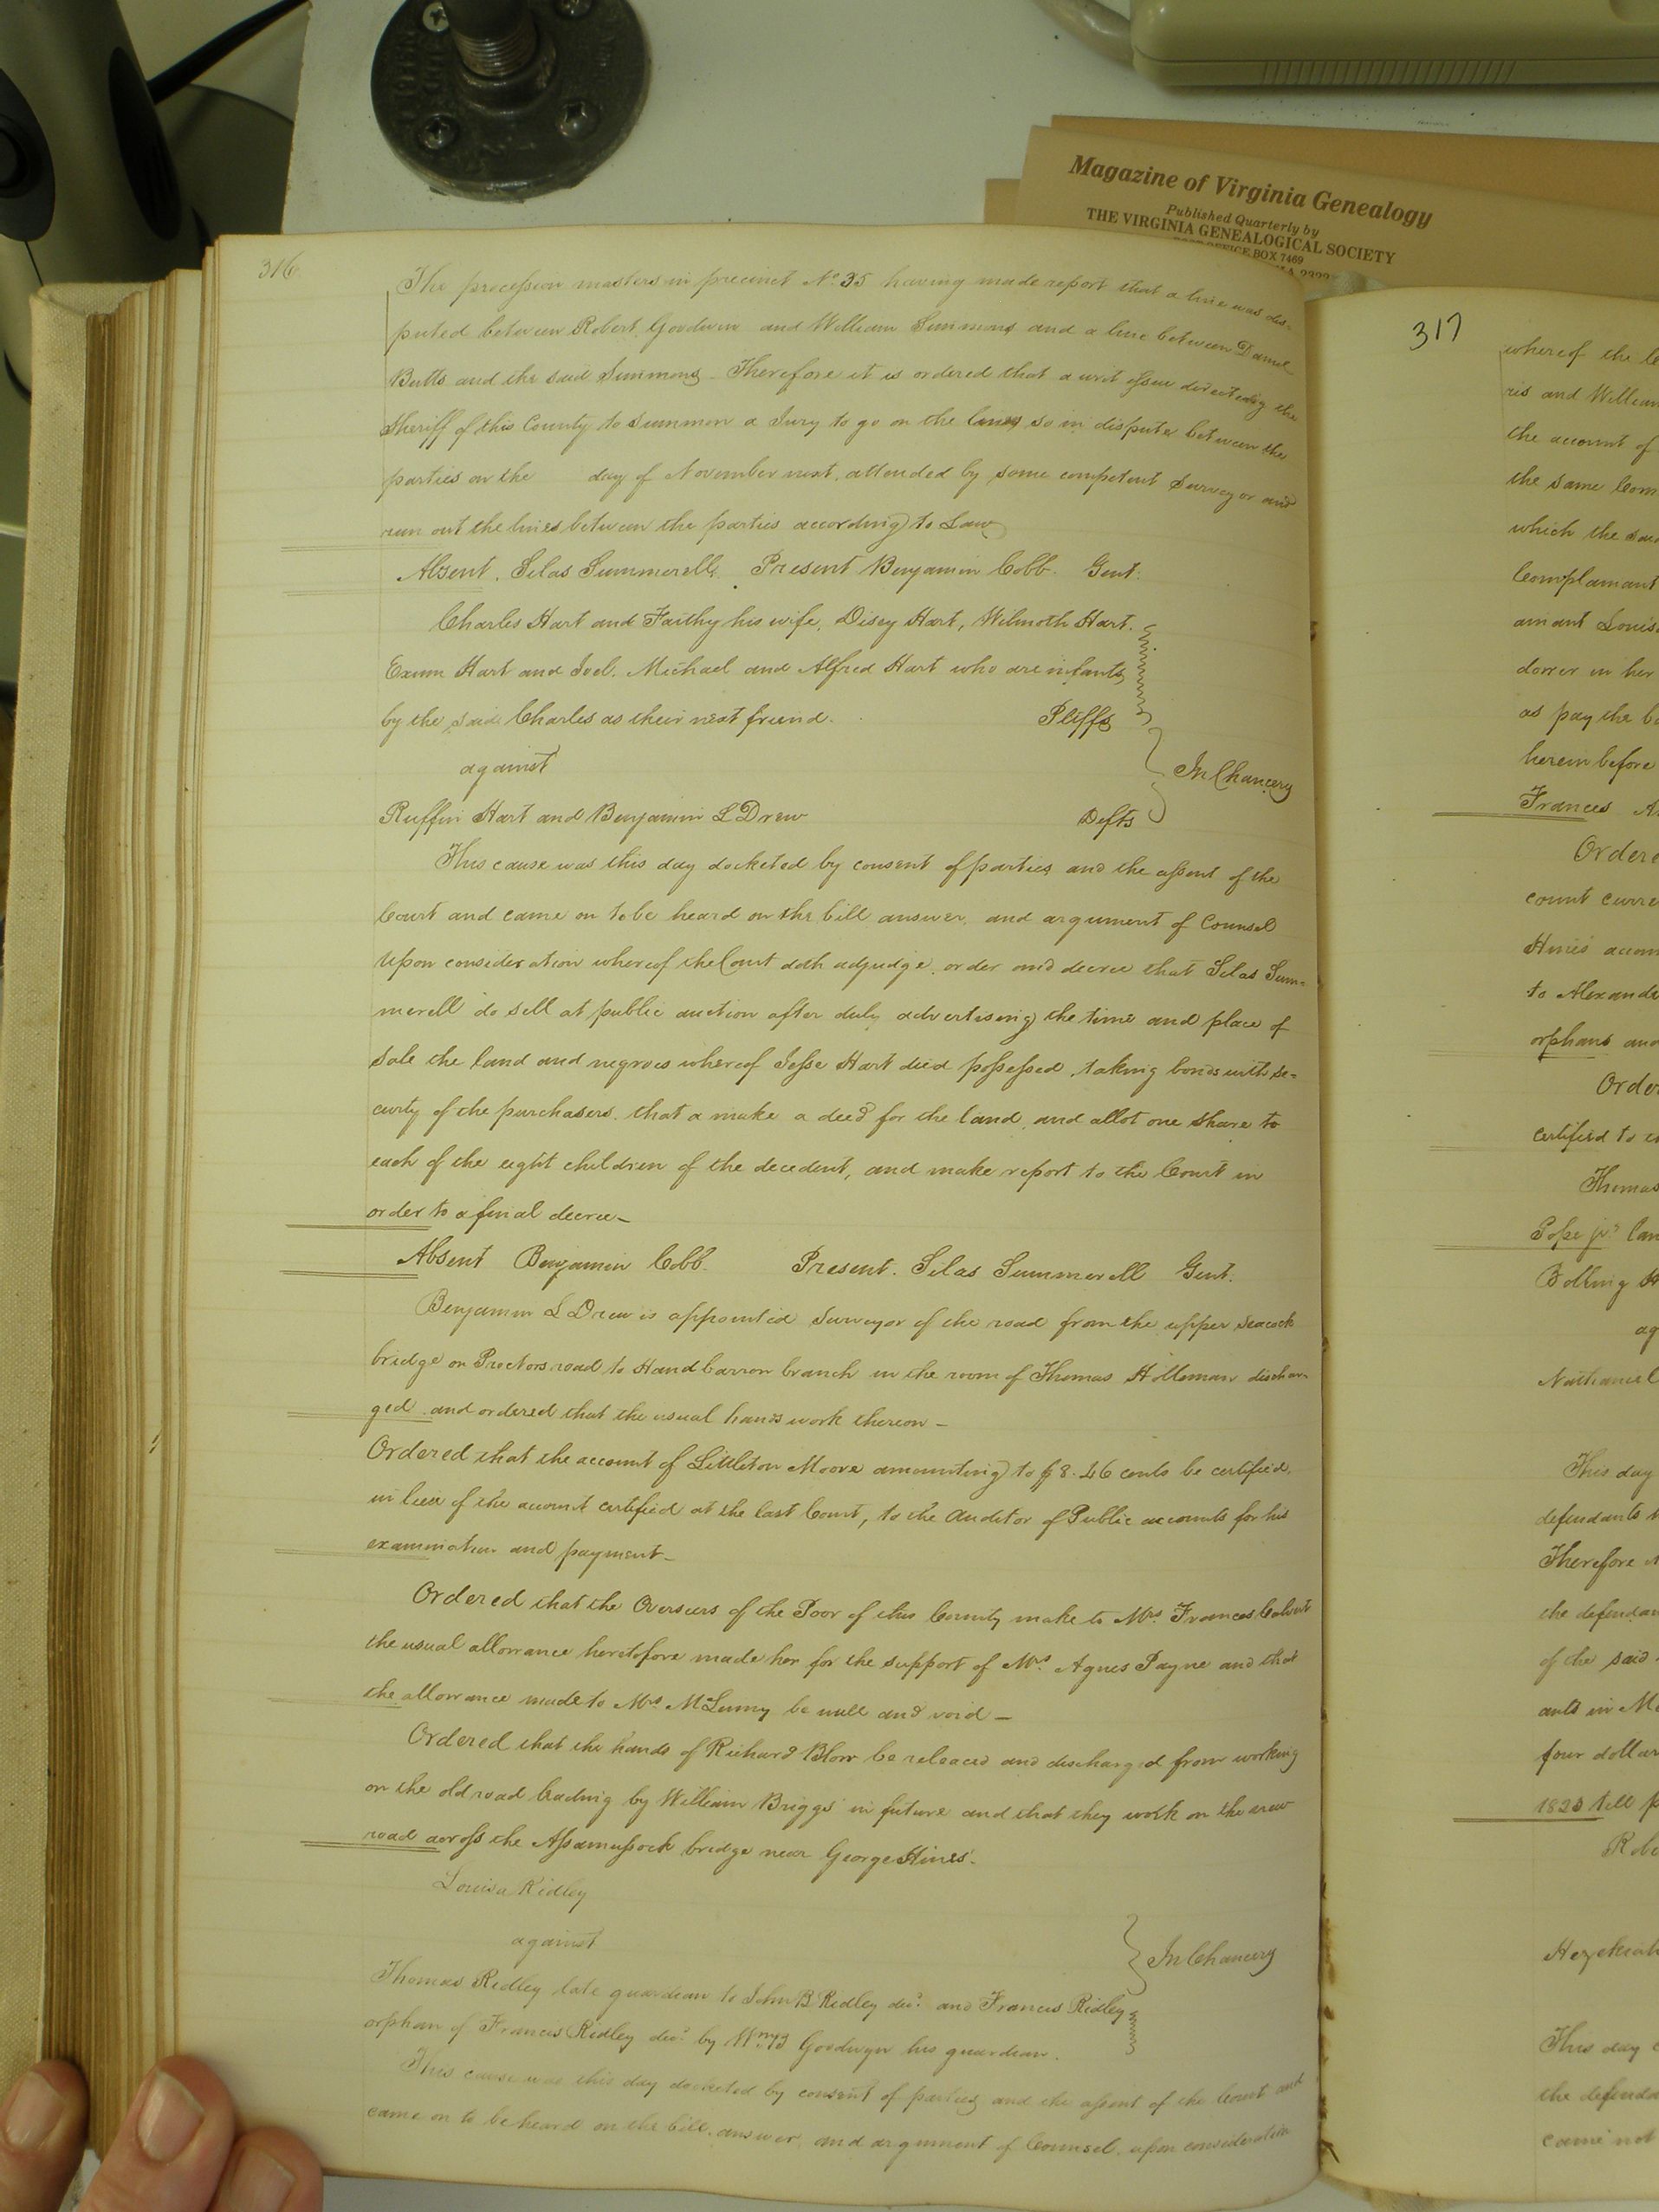 Magazine of Virginia Genealogy
Published Quarterly by
THE VIRGINIA GENEALOGICAL SOCIETY
POST OFFICE BOX 7469
316
The procession masters in precinct No. 35 having made report that a line was dis-
puted between Robert Goodwin and William Simmons and a line between Daniel
Butts and the said Simmons. Therefore it is ordered that a writ issue directing the
Sheriff of this County to Summon a Jury to go on the lines so in dispute between the
parties on the day of November next, attended by some competent Surveyor and
run out the lines between the parties according to Law
Absent. Silas Summerell. Present Benjamin Cobb. Gent.
Charles Hart and Faithy his wife, Disey Hart, Wilmoth Hart.
Exum Hart and Joel, Michael and Alfred Hart who are infants
by the said Charles as their next friend. Pltffs
against
In Chancery
Ruffin Hart and Benjamin L Drew Defts
This cause was this day docketed by consent of parties and the assent of the
Court and came on to be heard on the bill answer, and argument of Counsel
Upon consideration whereof the Court doth adjudge, order and decree that Silas Sum-
merell do sell at public auction after duly advertising the time and place of
sale the land and negroes whereof Jesse Hart died possessed, taking bonds with se-
curity of the purchasers, that a make a deed for the land, and allot one share to
each of the eight children of the decedent, and make report to the Court in
order to a final decree-
Absent Benjamin Cobb. Present. Silas Summerell Gent.
Benjamin L Drew is appointed Surveyor of the road from the upper Seacock
bridge on Proctors road to Handbarrow branch in the room of Thomas Holleman dischar-
ged, and ordered that the usual hands work thereon-
Ordered that the account of Littleton Moore amounting to $8.46 cents be certified,
in lieu of the account certified at the last Court, to the Auditor of Public accounts for his
examination and payment-
Ordered that the Overseers of the Poor of this County make to Mrs. Frances Calvert
the usual allowance heretofore made her for the support of Mrs. Agnes Payne and that
the allowance made to Mrs McLumy be null and void-
Ordered that the hands of Richard Blow be releaced and discharged from working
on the old road leading by William Briggs' in future and that they work on the new
road across the Assamussock bridge near George Hines'.
Louisa Ridley
against
In Chancery
Thomas Ridley late guardian to John B Ridley decd. and Francis Ridley
orphan of Francis Ridley decd. by Wm. Goodwyn his guardian.
This cause was this day docketed by consent of parties and the assent of the Court and
came on to be heard on the bill, answer, and argument of Counsel, upon consideration
317
whereof the
ris and William
the account of
the same Com
which the said
Complainant
ainant Louis
dower in her
as pay the
herein before
Frances
Ordere
count curre
Hines accou
to Alexand
orphans and
Order
certified to
Thomas
Pope jr. lan
Bolling
ag
Nathaniel
This day
defendants
Therefore
the defendan
of the said
ants in
four dollar
1823 till p
Robe
Hezekiah
This day
the defenda
came not